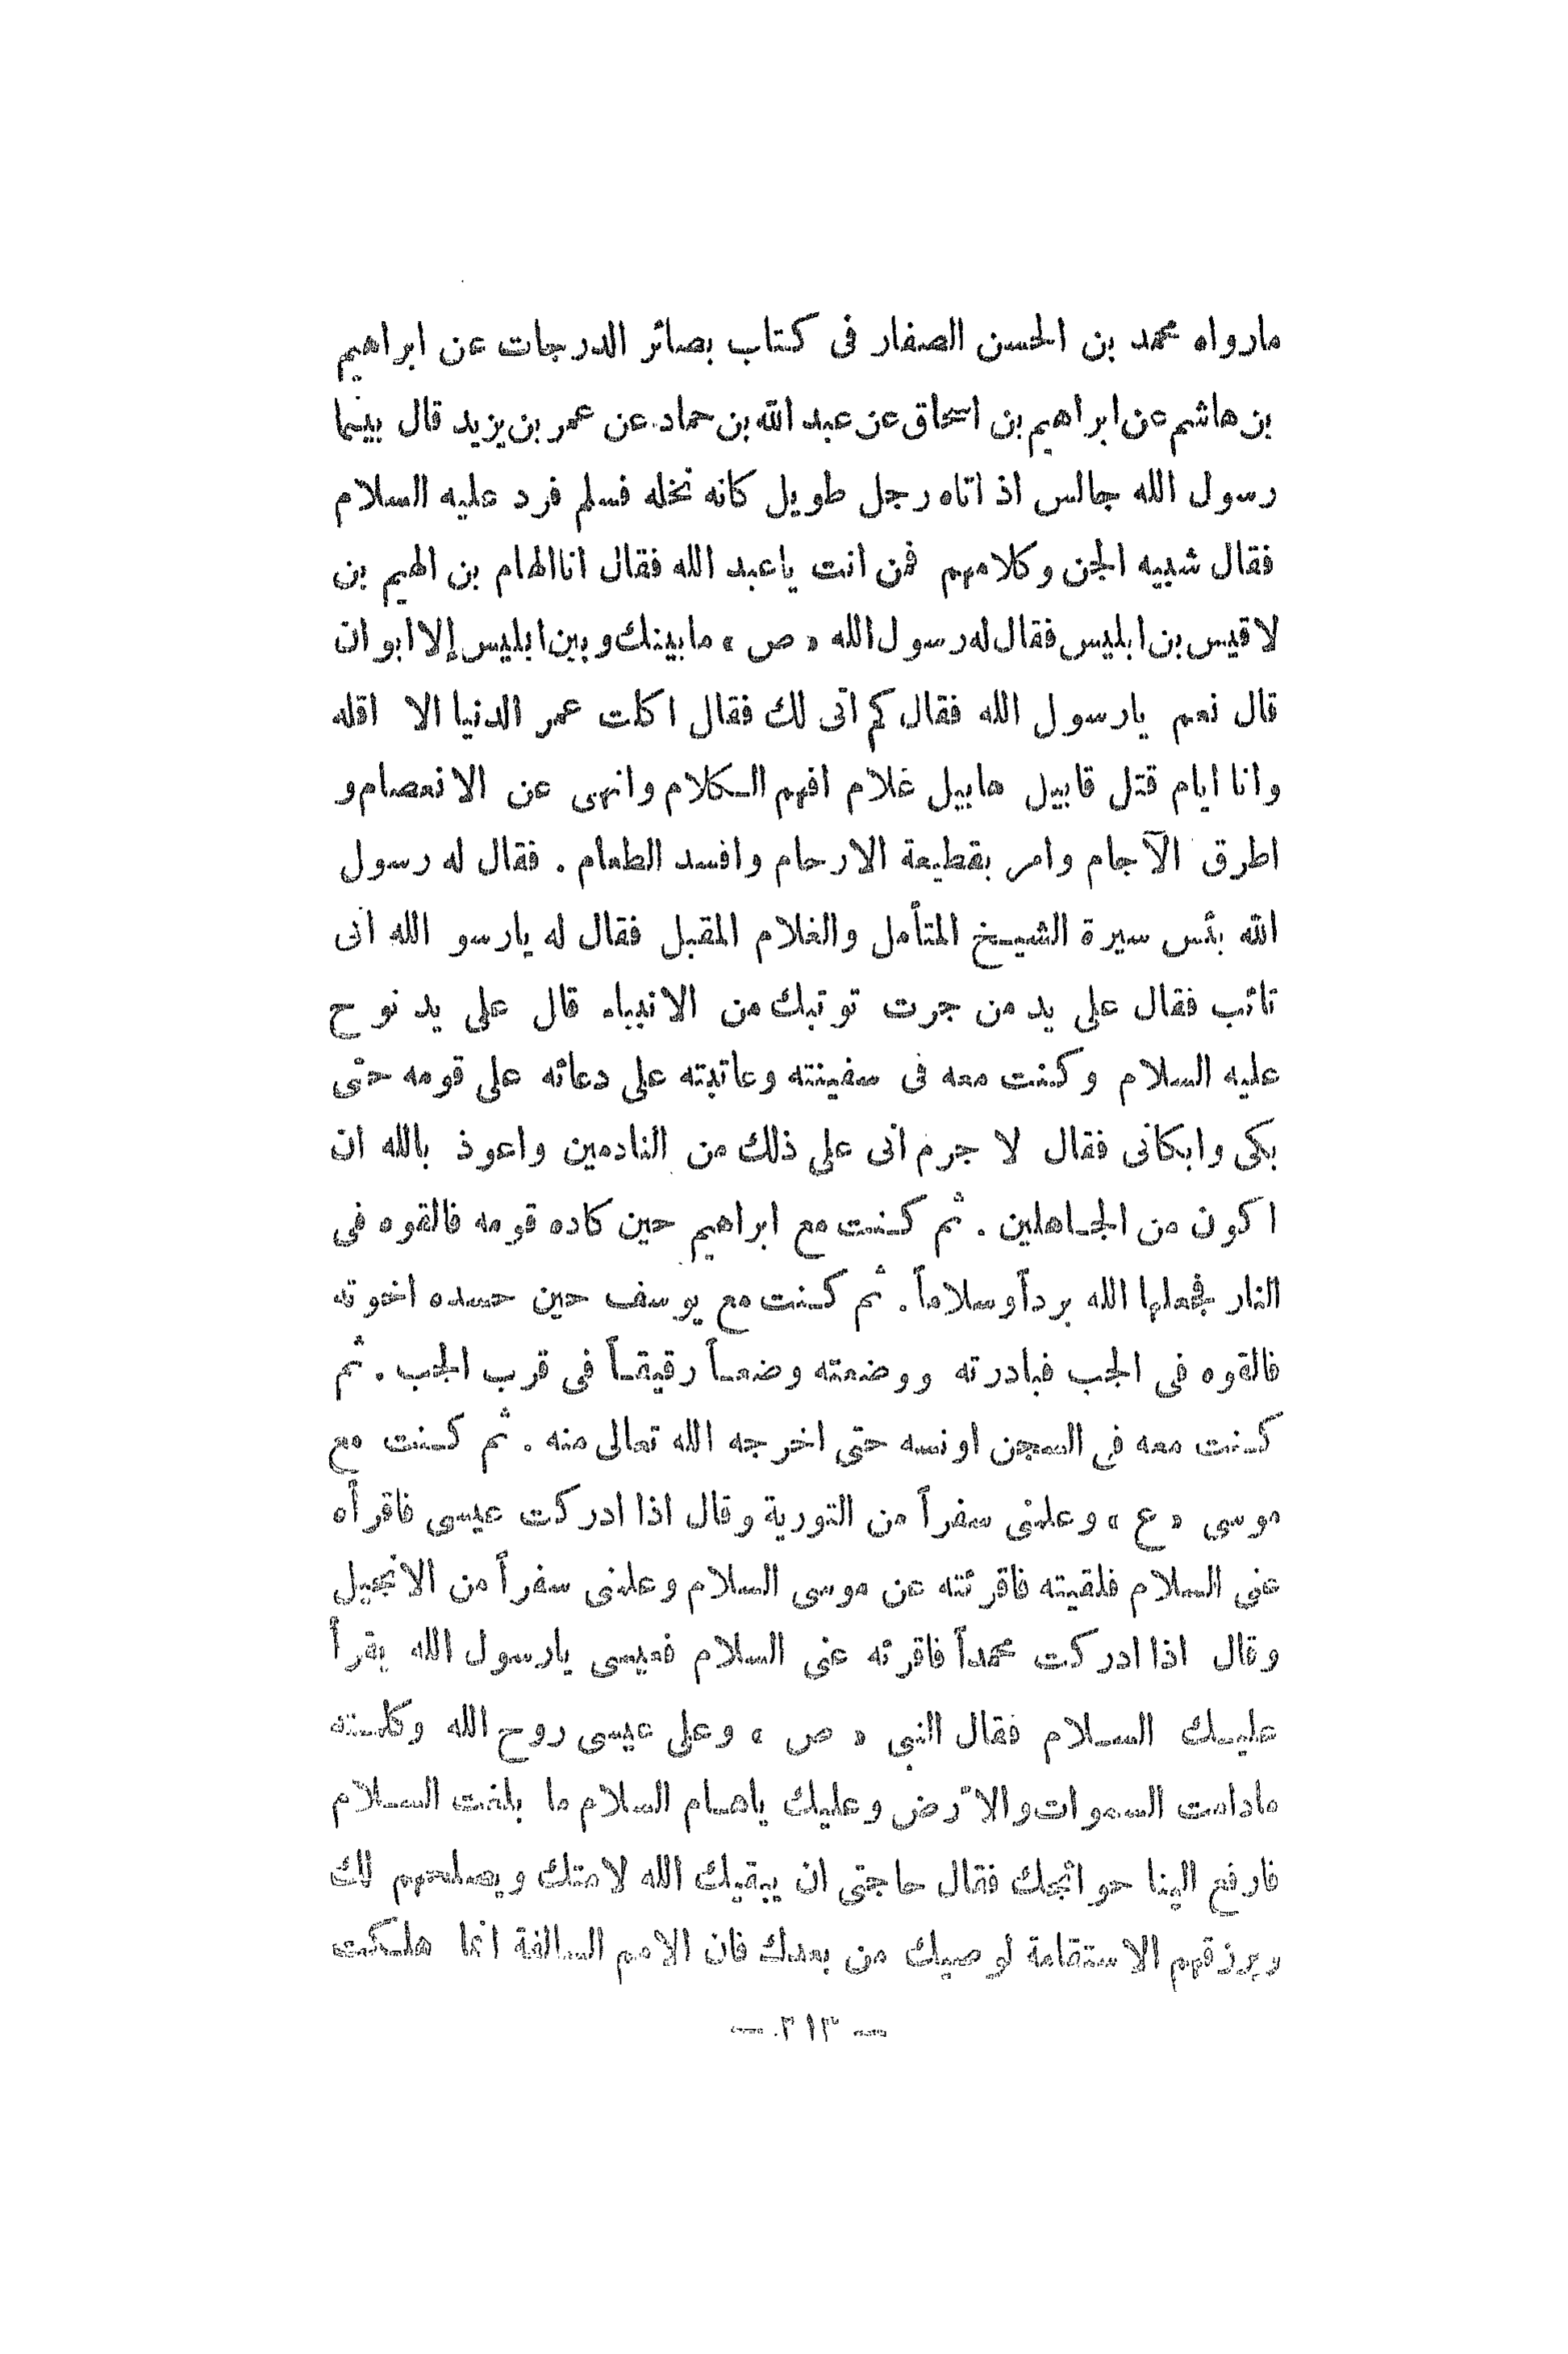 مارواه محمد بن الحسن الصفار فى كتاب بصائر الدرجات عن ابراهيم
بن هاشم عن ابراهيم بن اسحاق عن عبد الله بن حماد عن عمر بن يزيد قال بينما
رسول الله جالس اذ اتاه رجل طويل كانه نخله فسلم فرد عليه السلام
فقال شبيه الجن وكلامهم فمن انت ياعبد الله فقال انا الهام بن الهيم بن
لاقيس بن ابليس فقال له رسول الله « ص » مابينك وبين ابليس إلا ابوان
قال نعم يارسول الله فقال كم اتى لك فقال اكلت عمر الدنيا الا اقله
وانا ايام قتل قابيل هابيل غلام افهم الكلام وانهى عن الانعصام و
اطرق الآجام وامر بقطيعة الارحام وافسد الطعام . فقال له رسول
الله بئس سيرة الشيخ المتأمل والغلام المقبل فقال له يارسو الله انى
تائب فقال على يد من جرت توتبك من الانبياء قال على يد نوح
عليه السلام وكنت معه فى سفينته وعاتبته على دعائه على قومه حتى
بكى وابكانى فقال لا جرم انى على ذلك من النادمين واعوذ بالله ان
اكون من الجاهلين . ثم كنت مع ابراهيم حين كاده قومه فالقوه فى
النار فجعلها الله برداً وسلاماً . ثم كنت مع يوسف حين حسده اخوته
فالقوه فى الجب فبادرته ووضعته وضعاً رقيقاً فى قرب الجب . ثم
كنت معه فى السجن اونسه حتى اخرجه الله تعالى منه . ثم كنت مع
موسى « ع » وعلمنى سفراً من التورية وقال اذا ادركت عيسى فاقرأه
عنى السلام فلقيته فاقرئته عن موسى السلام وعلمنى سفراً من الانجيل
وقال اذا ادركت محمداً فاقرئه عنى السلام فعيسى يارسول الله يقرأ
عليك السلام فقال النبى « ص » وعلى عيسى روح الله وكلمته
مادامت السموات والأرض وعليك ياهام السلام ما بلغت السلام
فارفع الينا حوائجك فقال حاجتى ان يبقيك الله لامتك ويصلحهم لك
ويرزقهم الاستقامة لوصيك من بعدك فان الامم السالفة انما هلكت
— ٣١٣ —